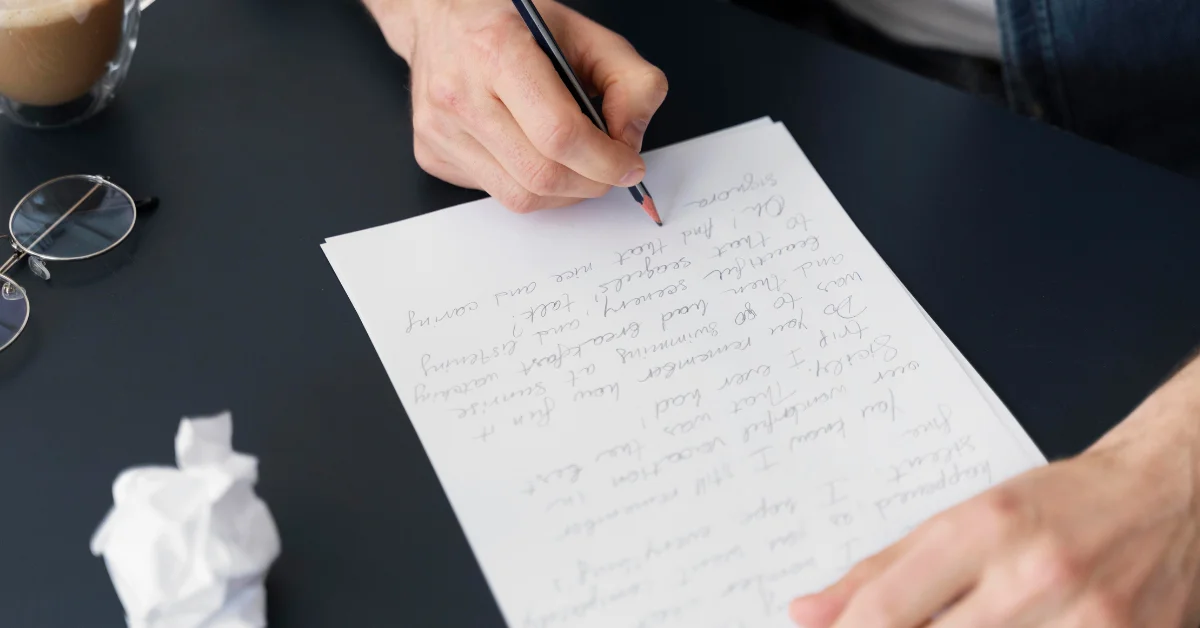 I wonder
happened as went
silent. I hope every thing's
fine.
You know I still remember
over wonderful vacation in
Sicily. That was the best
trip I ever had!
Do you remember how fun it
was to go swimming at sunrise
and then had breakfast watching
beautiful scenery, and listening
to that seagulls talk?
Oh! And that nice and caring
signora